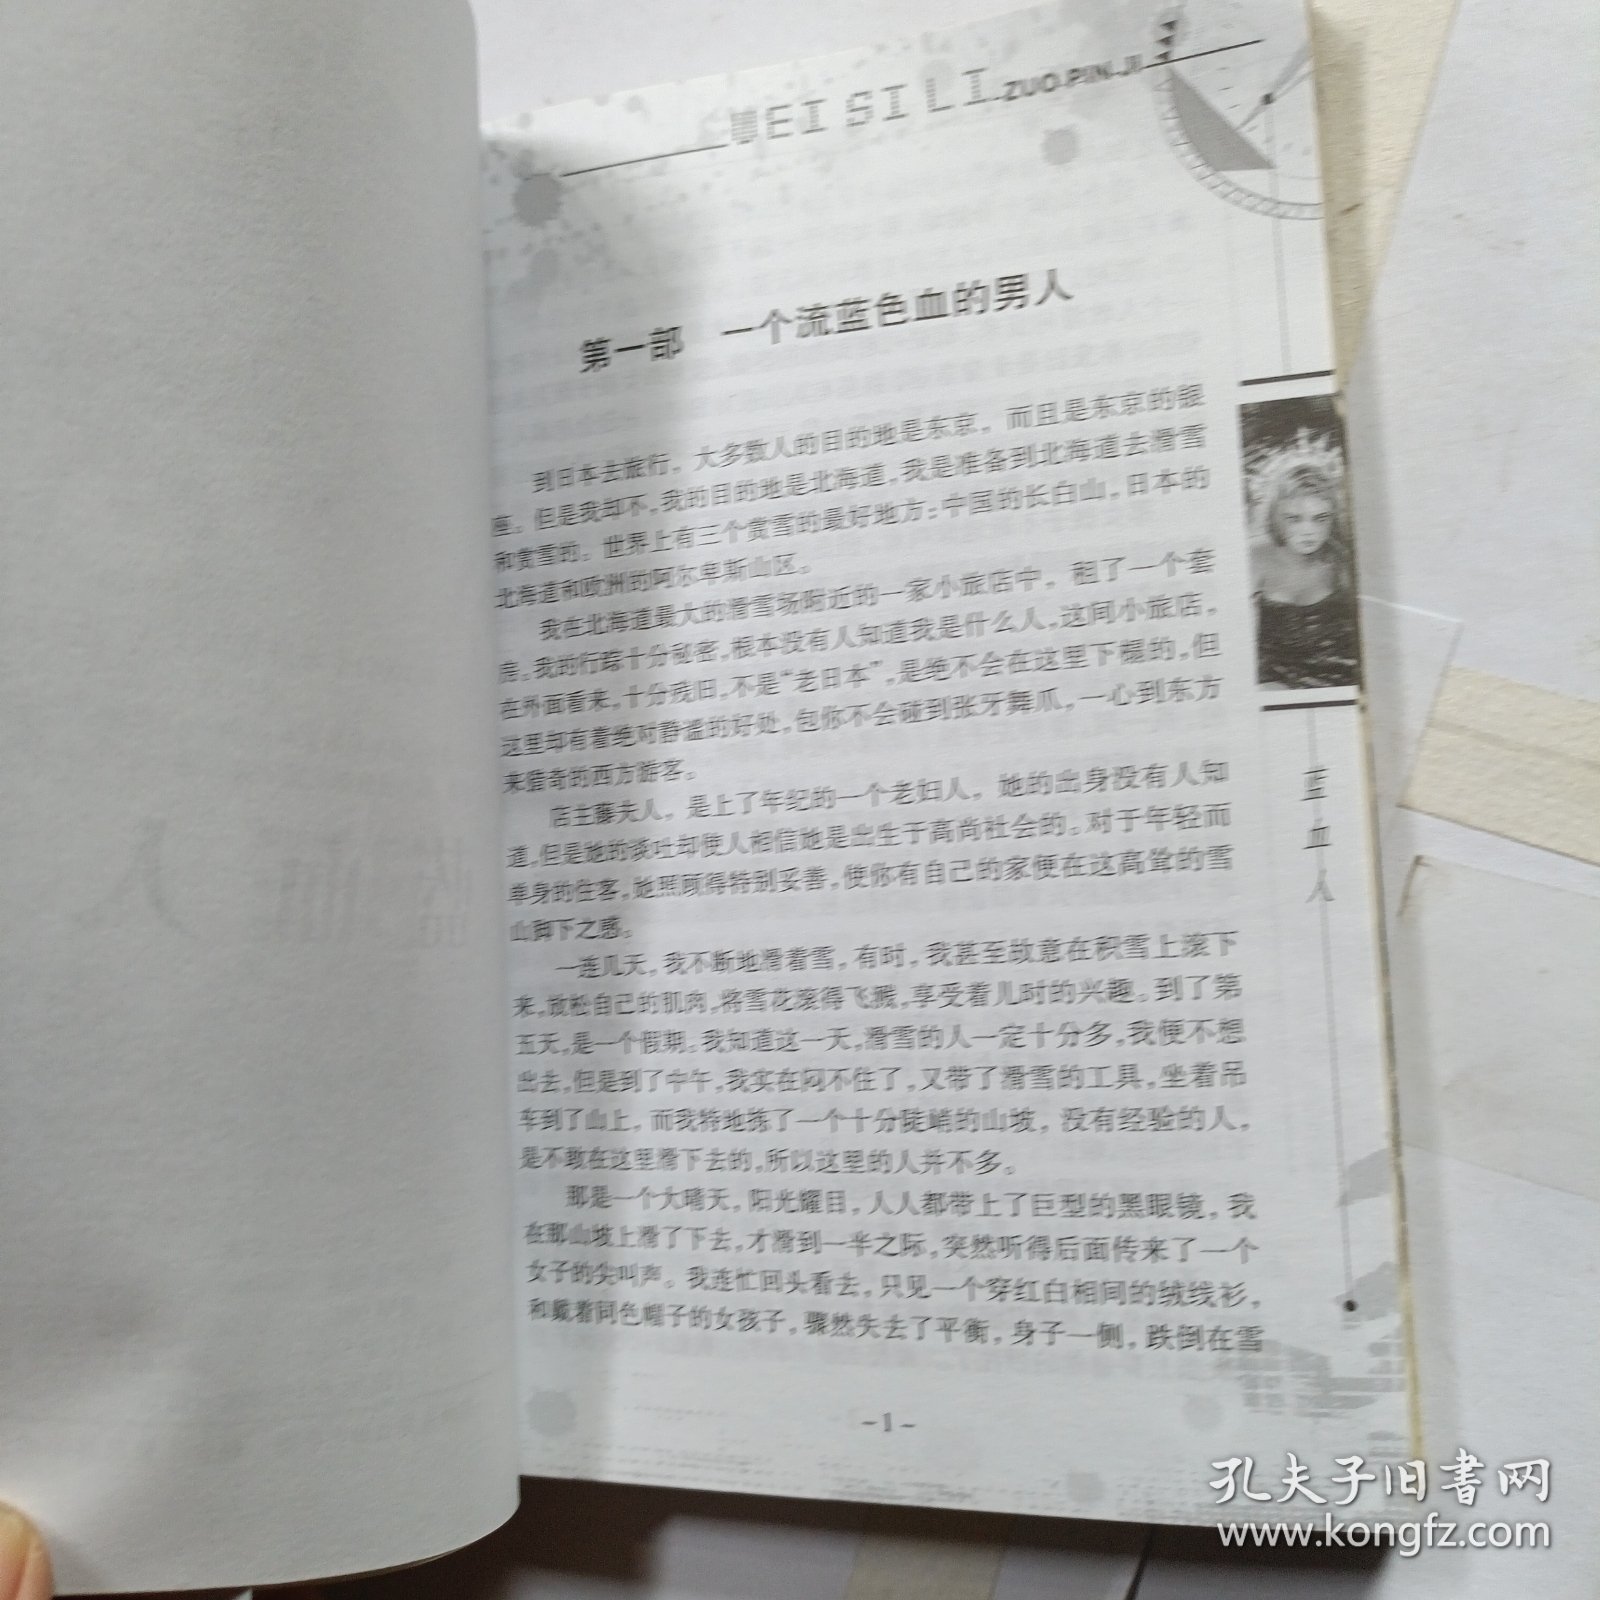 WEI SI LI ZUO PIN JI
第一部 一个流蓝色血的男人
到日本去旅行，大多数人的目的地是东京，而且是东京的银
座。但是我却不，我的目的地是北海道，我是准备到北海道去滑雪
和赏雪的。世界上有三个赏雪的最好地方：中国的长白山，日本的
北海道和欧洲的阿尔卑斯山区。
我在北海道最大的滑雪场附近的一家小旅店中，租了一个套
房。我的行踪十分秘密，根本没有人知道我是什么人，这间小旅店，
在外面看来，十分残旧，不是“老日本”，是绝不会在这里下榻的，但
这里却有着绝对静谧的好处，包你不会碰到张牙舞爪，一心到东方
来猎奇的西方游客。
店主藤夫人，是上了年纪的一个老妇人，她的出身没有人知
道，但是她的谈吐却使人相信她是出生于高尚社会的。对于年轻而
单身的住客，她照顾得特别妥善，使你有自己的家便在这高耸的雪
山脚下之感。
一连几天，我不断地滑着雪，有时，我甚至故意在积雪上滚下
来，放松自己的肌肉，将雪花滚得飞溅，享受着儿时的兴趣。到了第
五天，是一个假期。我知道这一天，滑雪的人一定十分多，我便不想
出去，但是到了中午，我实在闷不住了，又带了滑雪的工具，坐着吊
车到了山上，而我特地拣了一个十分陡峭的山坡，没有经验的人，
是不敢在这里滑下去的，所以这里的人并不多。
那是一个大晴天，阳光耀目，人人都带上了巨型的黑眼镜，我
在那山坡上滑了下去，才滑到一半之际，突然听得后面传来了一个
女子的尖叫声。我连忙回头看去，只见一个穿红白相间的绒线衫，
和戴着同色帽子的女孩子，骤然失去了平衡，身子一侧，跌倒在雪
-1-
蓝血人
孔夫子旧书网
www.kongfz.com